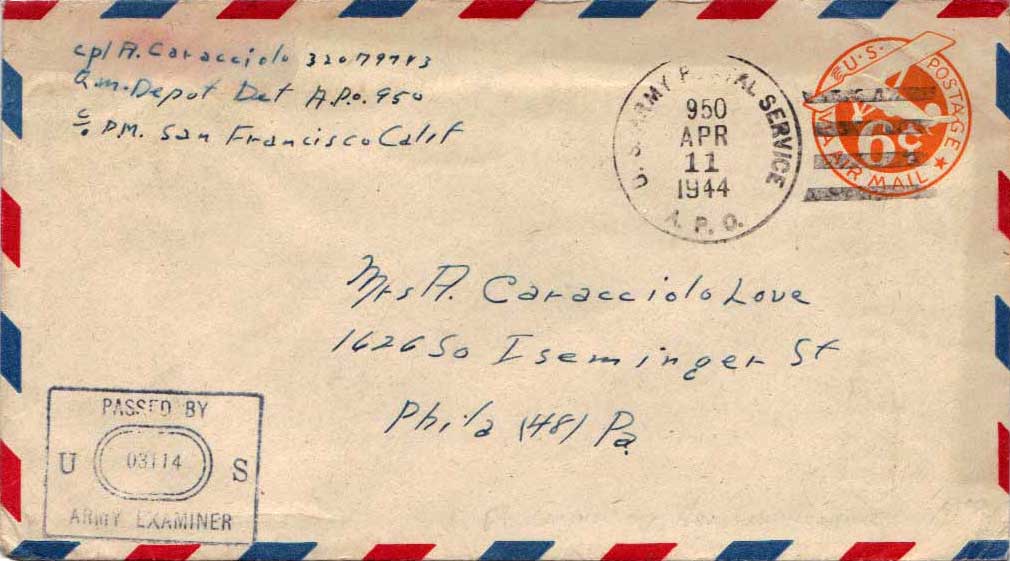 cpl A. Caracciolo 32079743
Q.m. Depot Det A.P.O. 950
c/o P.M. San Francisco Calif
U. S. ARMY POSTAL SERVICE
950
APR
11
1944
A. P. O.
U.S. POSTAGE
6c
VIA AIR MAIL
Mrs A. Caracciolo Love
1626 So Iseminger St
Phila (48) Pa
PASSED BY
U 03114 S
ARMY EXAMINER